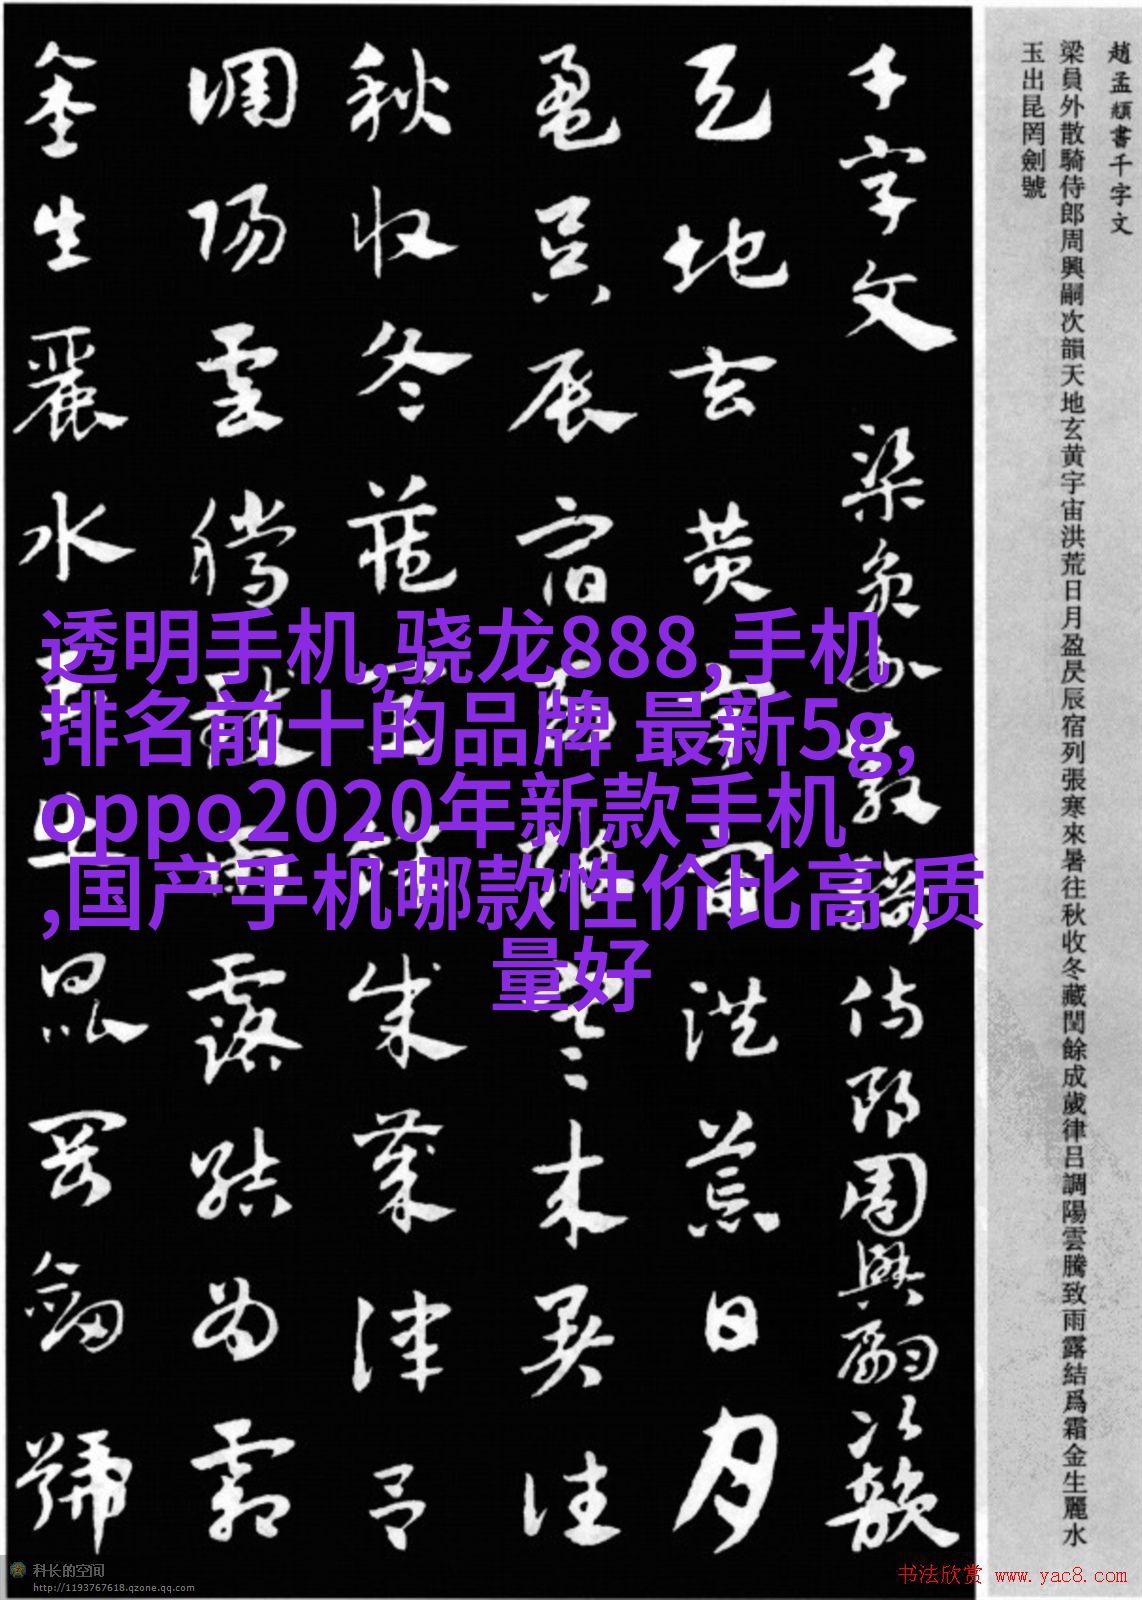 趙孟頫書千字文
梁員外散騎侍郎周興嗣次韻天地玄黄宇宙洪荒日月盈昃辰宿列張寒來暑往秋收冬藏閏餘成歲律呂調陽雲騰致雨露結爲霜金生麗水
玉出昆罔劍號
千字文梁員外散騎侍郎周興嗣次韻
天地玄黄宇宙洪荒日月
盈昃辰宿列張寒來暑往
秋收冬藏閏餘成歲律呂
調陽雲騰致雨露結為霜
金生麗水玉出崑岡劍號
透明手机,骁龙888,手机
排名前十的品牌 最新5g,
oppo2020年新款手机
,国产手机哪款性价比高 质
量好
科长的空间
http://1193767618.qzone.qq.com
书法欣赏 www.yac8.com